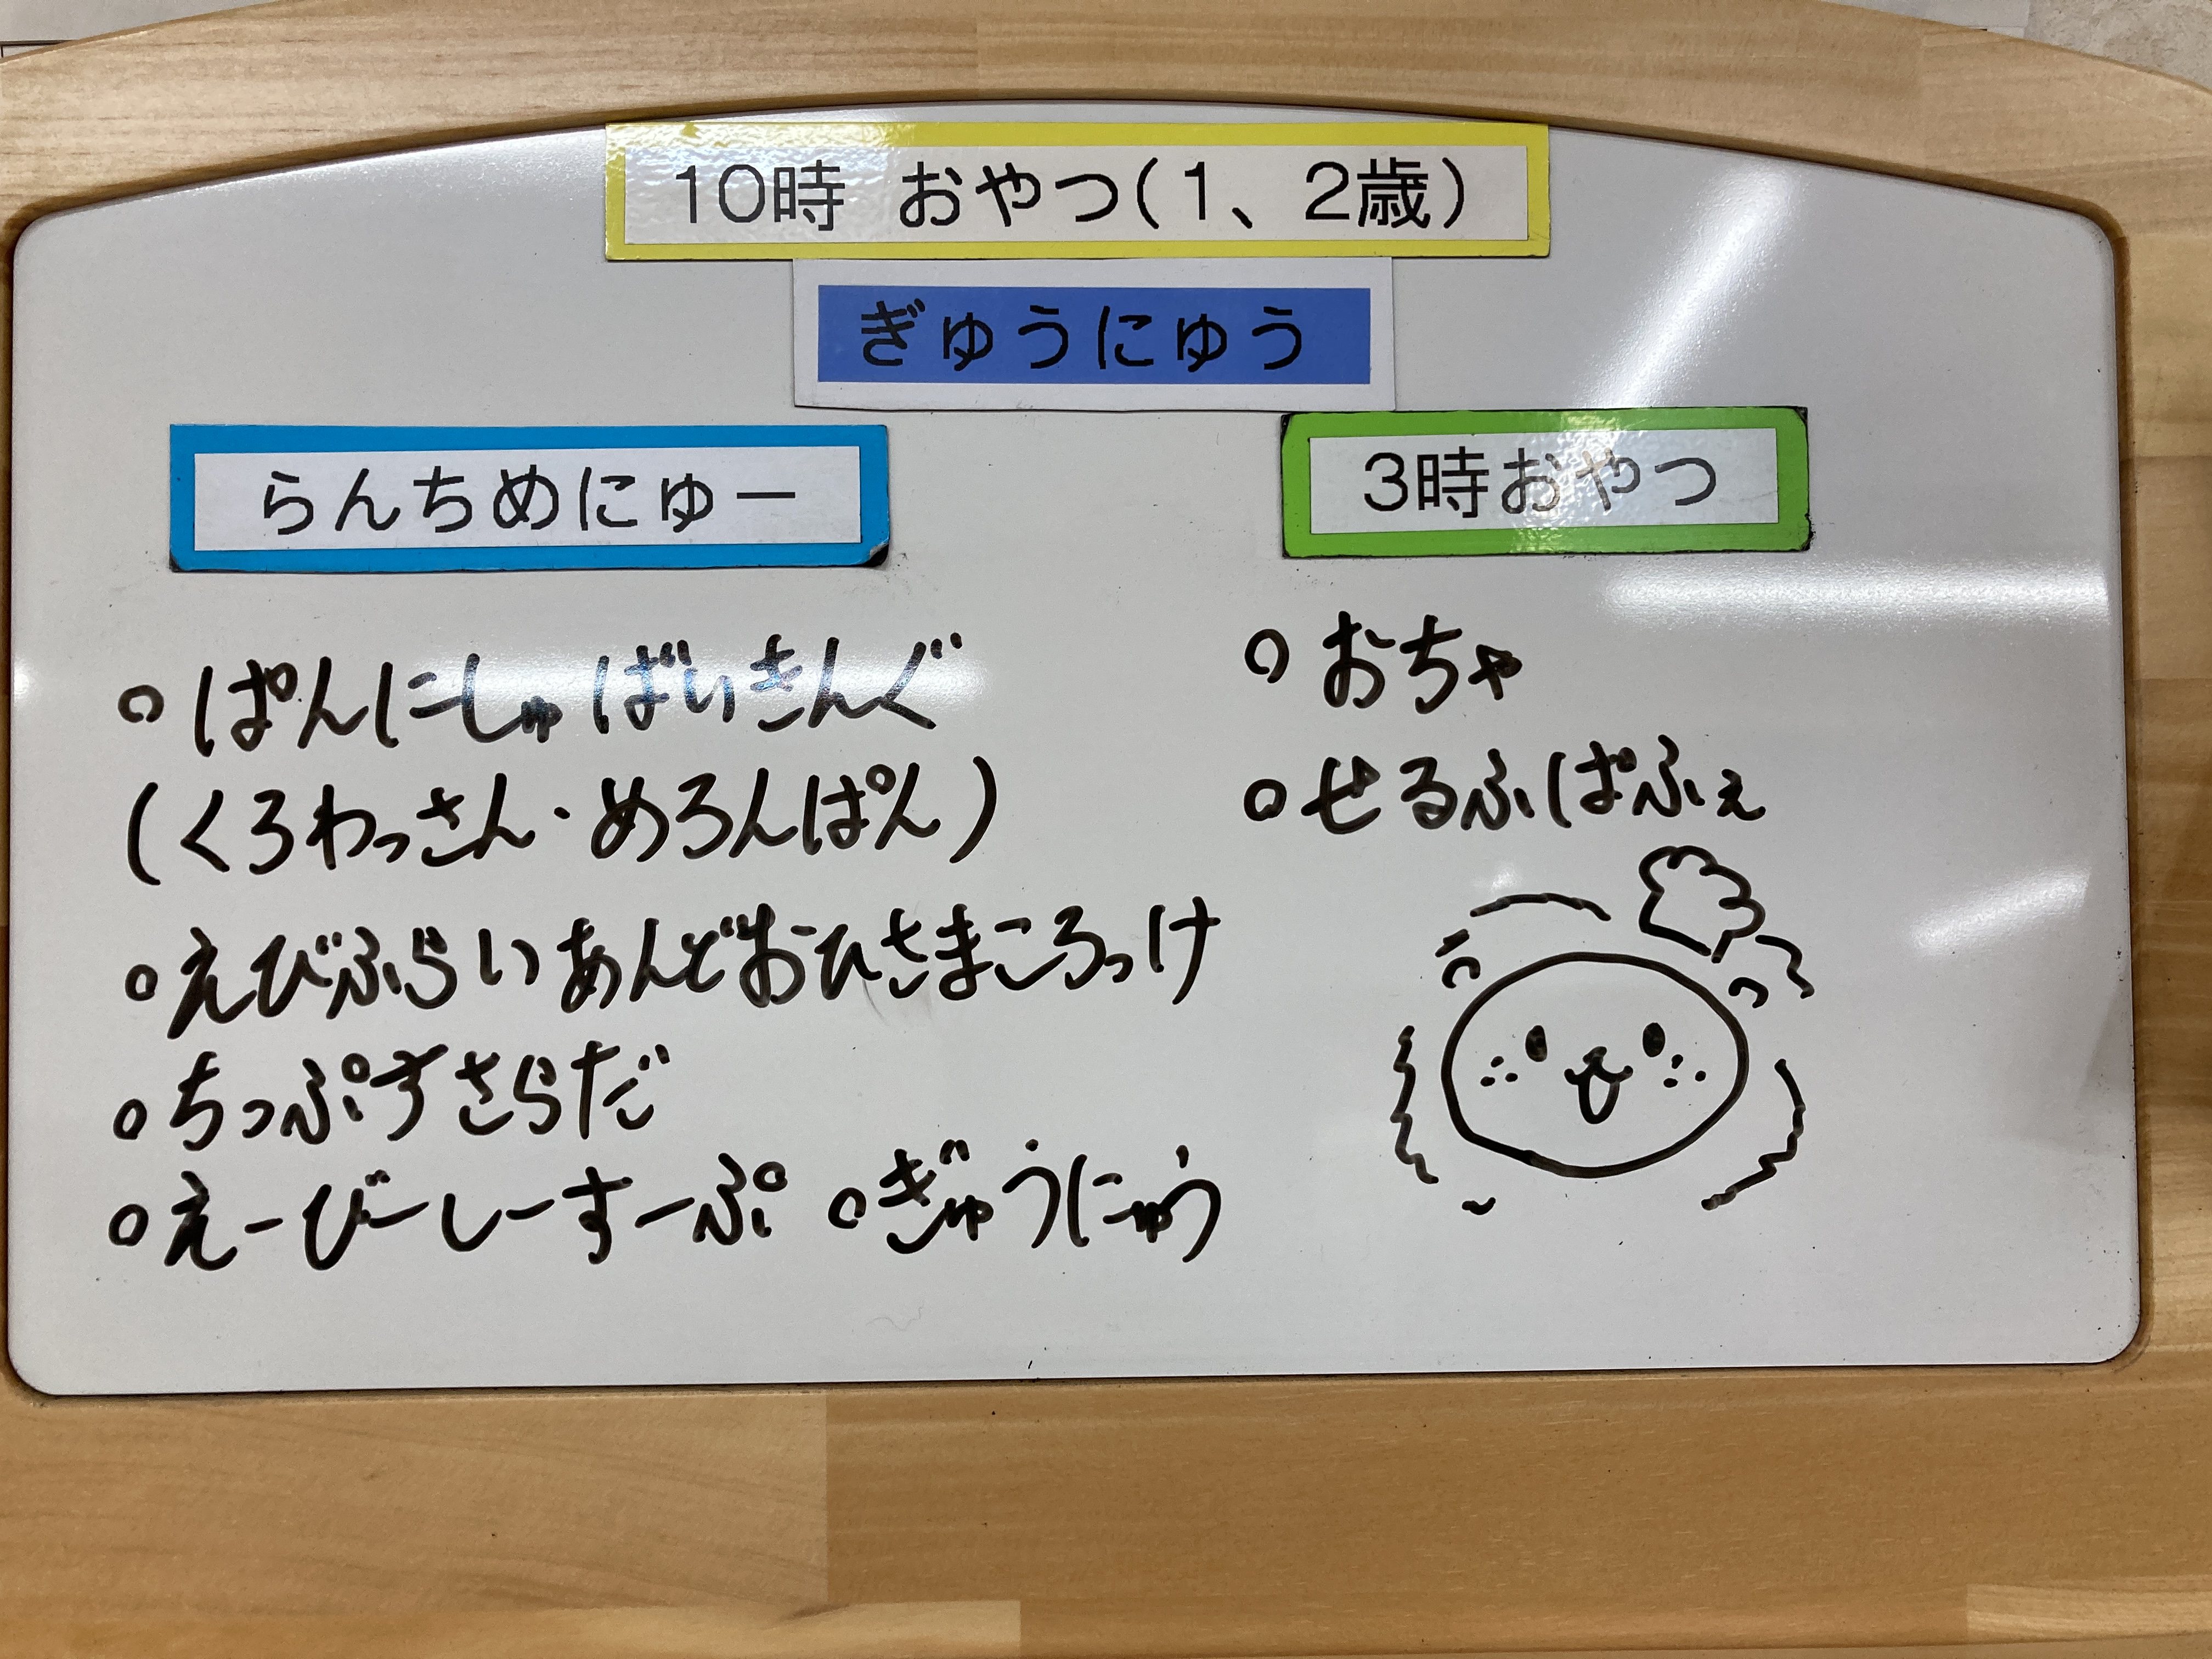 10時 おやつ(1、2歳)
ぎゅうにゅう
らんちめにゅー
○ぱんにしゅばいきんぐ
(くろわっさん・めろんぱん)
○えびふらいあんどおひさまころっけ
○ちっぷすさらだ
○えーびーしーすーぷ ○ぎゅうにゅう
3時おやつ
○おちゃ
○せるふぱふぇ